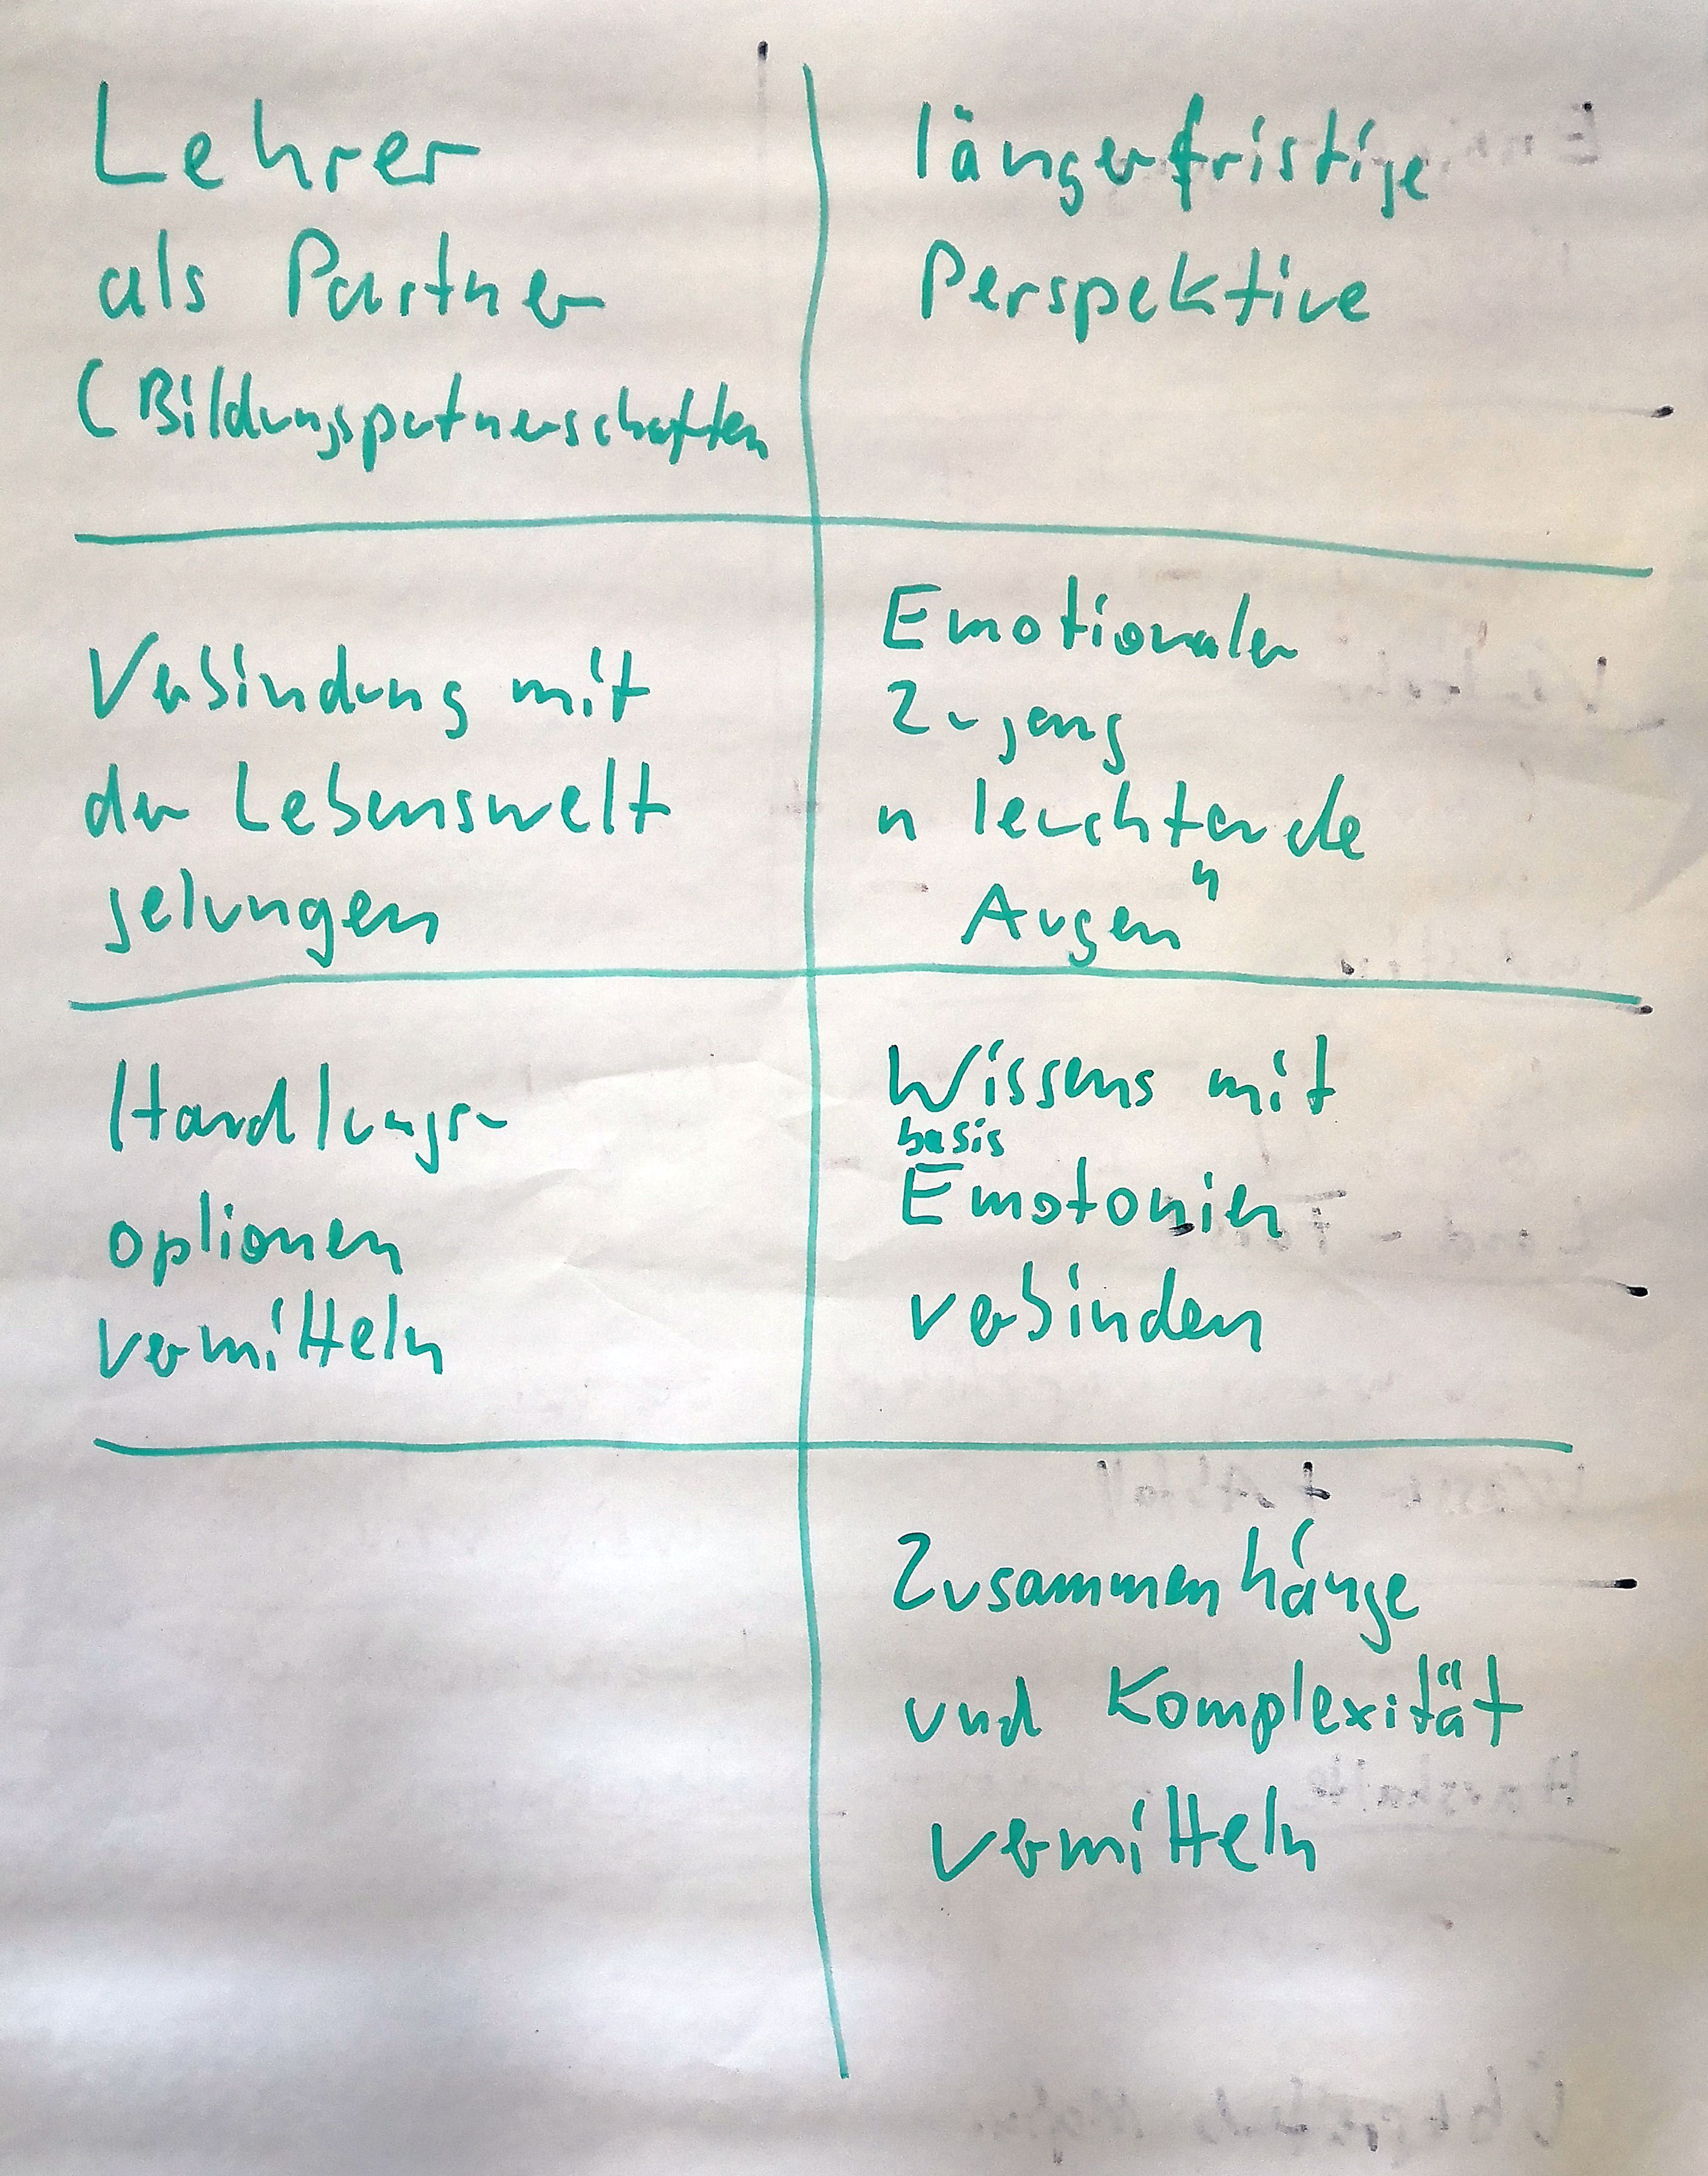 Lehrer
als Partner
(Bildungspartnerschaften
längerfristige
Perspektive
Verbindung mit
der Lebenswelt
gelungen
Emotionaler
Zugang
"leuchtende
Augen"
Handlungs-
optionen
vermitteln
Wissens mit
basis
Emotonien
verbinden
Zusammenhänge
und Komplexität
vermitteln